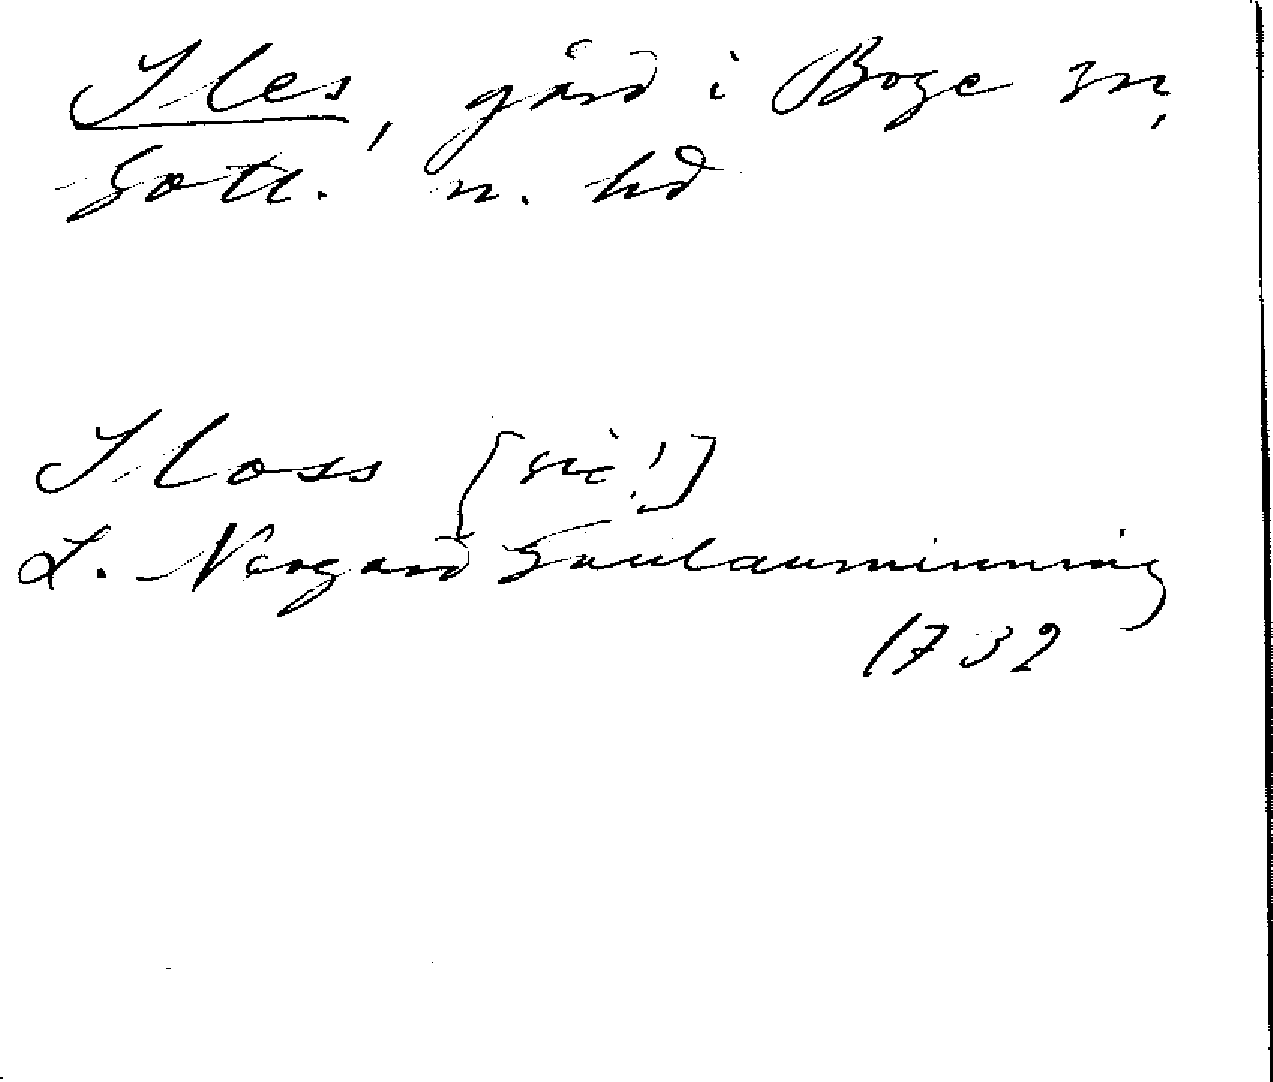 Iles, gård i Boge sn,
Gotl. n. hd
Iloss [sic!]
L. Neogard Gaulauminning
1732